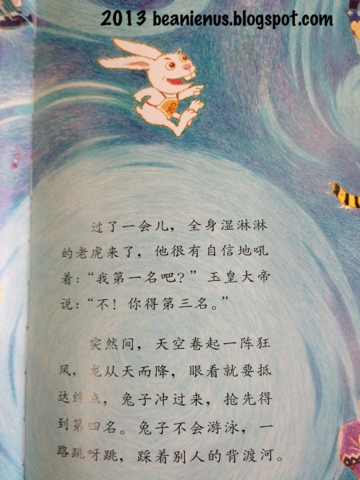 2013 beanienus.blogspot.com
过了一会儿，全身湿淋淋
的老虎来了，他很有自信地吼
着：“我第一名吧？”玉皇大帝
说：“不！你得第三名。”
突然间，天空卷起一阵狂
风，龙从天而降，眼看就要抵
达终点，兔子冲过来，抢先得
到第四名。兔子不会游泳，一
路跳呀跳，踩着别人的背渡河。